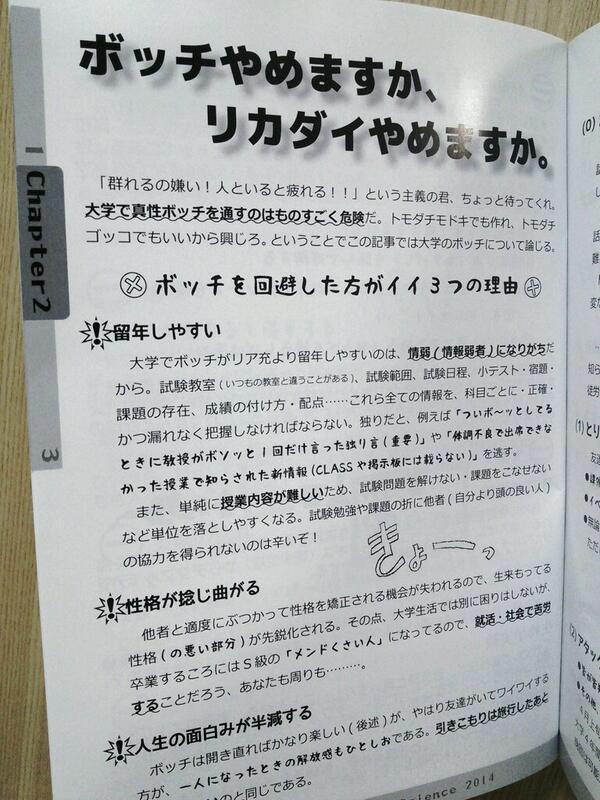 ボッチやめますか、
リカダイやめますか。
1
Chapter2
3
「群れるの嫌い！人といると疲れる！！」という主義の君、ちょっと待ってくれ。
大学で真性ボッチを通すのはものすごく危険だ。トモダチモドキでも作れ、トモダチ
ゴッコでもいいから興じろ。ということでこの記事では大学のボッチについて論じる。
ボッチを回避した方がイイ3つの理由
留年しやすい
大学でボッチがリア充より留年しやすいのは、情弱(情報弱者)になりがちだ
から。試験教室(いつもの教室と違うことがある)、試験範囲、試験日程、小テスト・宿題・
課題の存在、成績の付け方・配点……これら全ての情報を、科目ごとに・正確・
かつ漏れなく把握しなければならない。独りだと、例えば「ついボ～ッとしてる
ときに教授がボソッと1回だけ言った独り言(重要)」や「体調不良で出席できな
かった授業で知らされた新情報(CLASSや掲示板には載らない)」を逃す。
また、単純に授業内容が難しいため、試験問題を解けない・課題をこなせない
など単位を落としやすくなる。試験勉強や課題の折に他者(自分より頭の良い人)
の協力を得られないのは辛いぞ！
きょーっ
性格が捻じ曲がる
他者と適度にぶつかって性格を矯正される機会が失われるので、生来もってる
性格(の悪い部分)が先鋭化される。その点、大学生活では別に困りはしないが、
卒業するころにはS級の「メンドくさい人」になってるので、就活・社会で苦労
することだろう、あなたも周りも………。
人生の面白みが半減する
ボッチは開き直ればかなり楽しい(後述)が、やはり友達がいてワイワイする
方が、一人になったときの解放感もひとしおである。引きこもりは旅行したあと
のと同じである。
Science 2014
(0)
(1)とり
(2)アタック